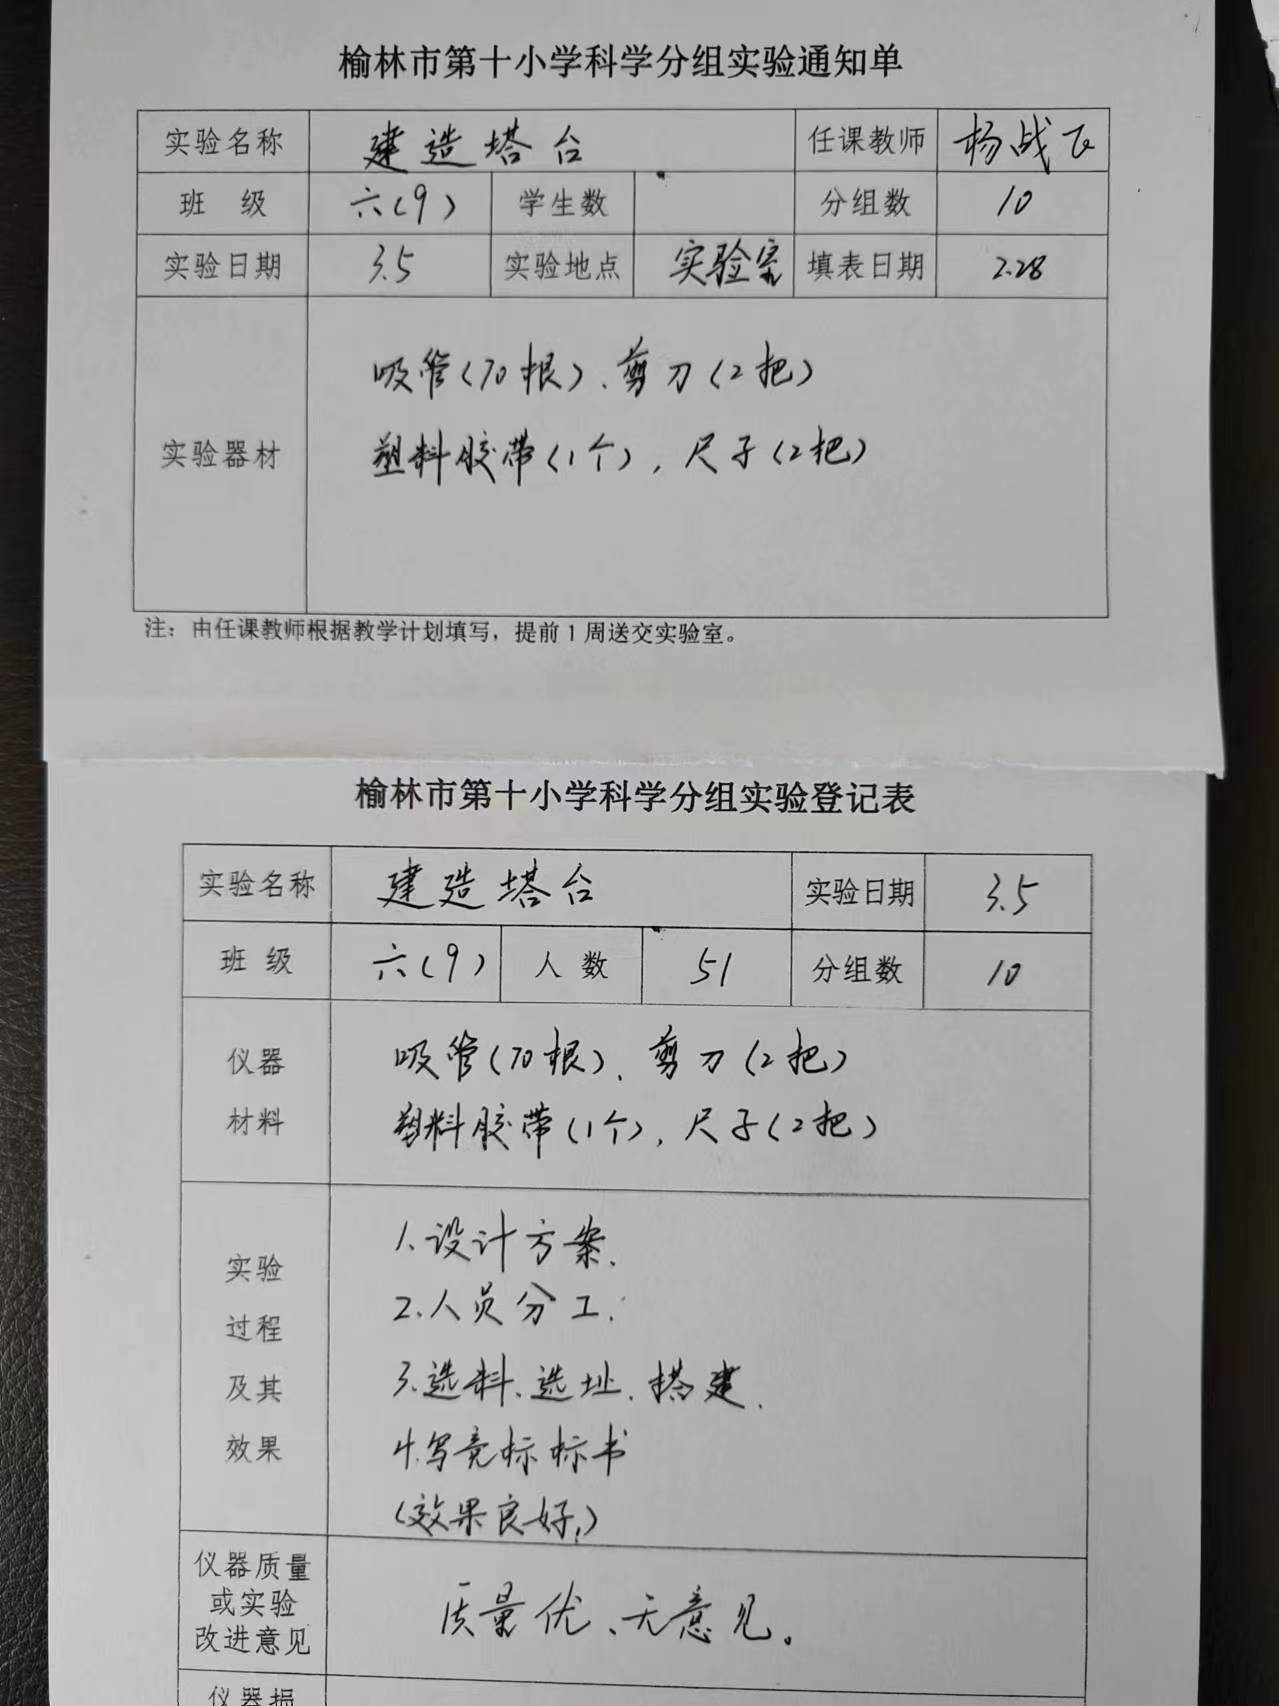 榆林市第十小学科学分组实验通知单
实验名称 建造塔台 任课教师 杨战飞
班 级 六(9) 学生数 分组数 10
实验日期 3.5 实验地点 实验室 填表日期 2.28
吸管(70根)、剪刀(2把)
实验器材 塑料胶带(1个),尺子(2把)
注:由任课教师根据教学计划填写,提前1周送交实验室。
榆林市第十小学科学分组实验登记表
实验名称 建造塔台 实验日期 3.5
班 级 六(9) 人 数 51 分组数 10
仪器 吸管(70根)、剪刀(2把)
材料 塑料胶带(1个),尺子(2把)
1.设计方案.
实验
2.人员分工.
过程
及其 3.选料、选址、搭建.
效果 4.写竞标标书
(效果良好.)
仪器质量
或实验 质量优、无意见。
改进意见
仪器损